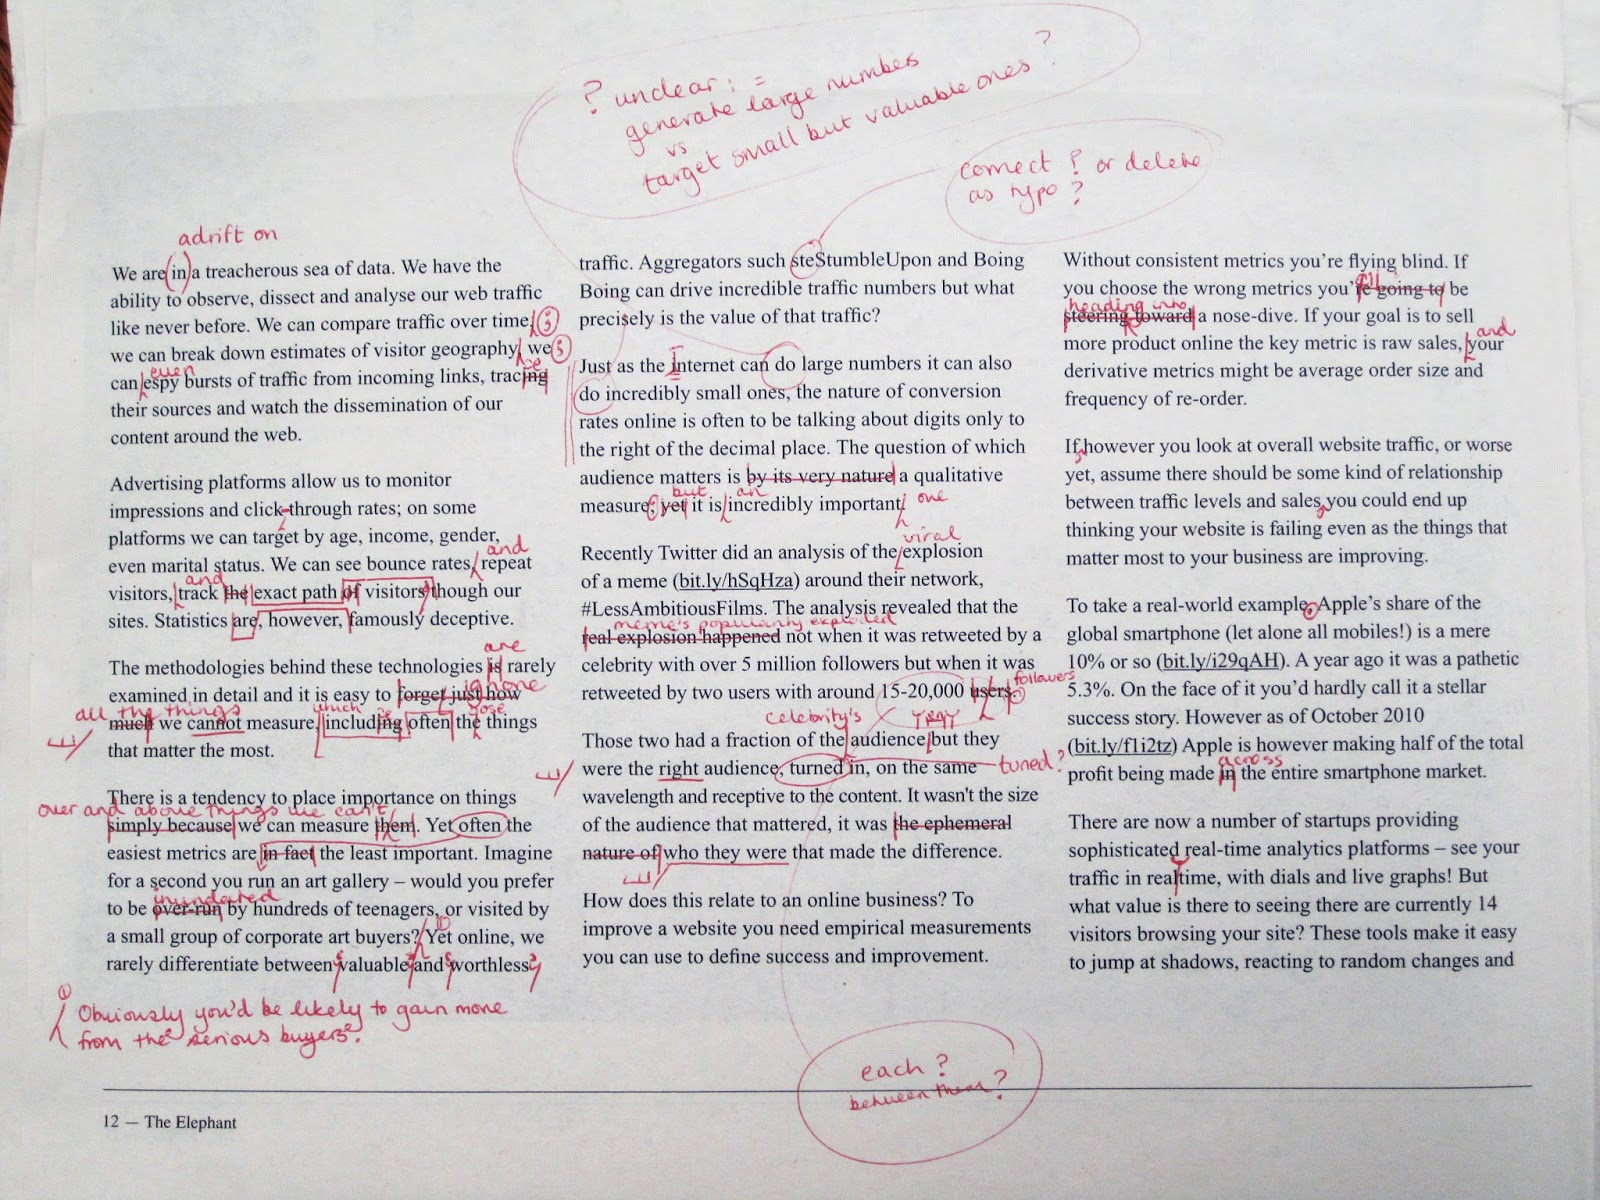 ? unclear: =
generate large numbers
vs
target small but valuable ones?
correct? or delete
as typo?
adrift on
We are in a treacherous sea of data. We have the
ability to observe, dissect and analyse our web traffic
like never before. We can compare traffic over time, ;
we can break down estimates of visitor geography, we ;
even
can espy bursts of traffic from incoming links, tracing
their sources and watch the dissemination of our
content around the web.
Advertising platforms allow us to monitor
impressions and click-through rates; on some
platforms we can target by age, income, gender,
and
even marital status. We can see bounce rates, repeat
and
visitors, track the exact path of visitors though our
sites. Statistics are, however, famously deceptive.
are
The methodologies behind these technologies is rarely
ignore
examined in detail and it is easy to forget just how
all the things
which
those
much we cannot measure, including often the things
that matter the most.
There is a tendency to place importance on things
over and above things we can't
simply because we can measure them. Yet often the
easiest metrics are in fact the least important. Imagine
for a second you run an art gallery – would you prefer
inundated
to be over-run by hundreds of teenagers, or visited by
a small group of corporate art buyers? Yet online, we
rarely differentiate between valuable and worthless
Obviously you'd be likely to gain more
from the serious buyers.
traffic. Aggregators such steStumbleUpon and Boing
Boing can drive incredible traffic numbers but what
precisely is the value of that traffic?
Just as the internet can do large numbers it can also
do incredibly small ones, the nature of conversion
rates online is often to be talking about digits only to
the right of the decimal place. The question of which
audience matters is by its very nature a qualitative
but an one
measure; yet it is incredibly important.
viral
Recently Twitter did an analysis of the explosion
of a meme (bit.ly/hSqHza) around their network,
#LessAmbitiousFilms. The analysis revealed that the
meme's popularity exploded
real explosion happened not when it was retweeted by a
celebrity with over 5 million followers but when it was
followers
retweeted by two users with around 15-20,000 users.
celebrity's
Those two had a fraction of the audience but they
were the right audience, turned in, on the same
tuned?
wavelength and receptive to the content. It wasn't the size
of the audience that mattered, it was the ephemeral
nature of who they were that made the difference.
How does this relate to an online business? To
improve a website you need empirical measurements
you can use to define success and improvement.
each?
between them?
Without consistent metrics you're flying blind. If
'll
you choose the wrong metrics you're going to be
heading into
steering toward a nose-dive. If your goal is to sell
and
more product online the key metric is raw sales, your
derivative metrics might be average order size and
frequency of re-order.
If however you look at overall website traffic, or worse
yet, assume there should be some kind of relationship
between traffic levels and sales you could end up
thinking your website is failing even as the things that
matter most to your business are improving.
To take a real-world example, Apple's share of the
global smartphone (let alone all mobiles!) is a mere
10% or so (bit.ly/i29qAH). A year ago it was a pathetic
5.3%. On the face of it you'd hardly call it a stellar
success story. However as of October 2010
(bit.ly/f1i2tz) Apple is however making half of the total
across
profit being made in the entire smartphone market.
There are now a number of startups providing
sophisticated real-time analytics platforms – see your
traffic in realtime, with dials and live graphs! But
what value is there to seeing there are currently 14
visitors browsing your site? These tools make it easy
to jump at shadows, reacting to random changes and
12 — The Elephant